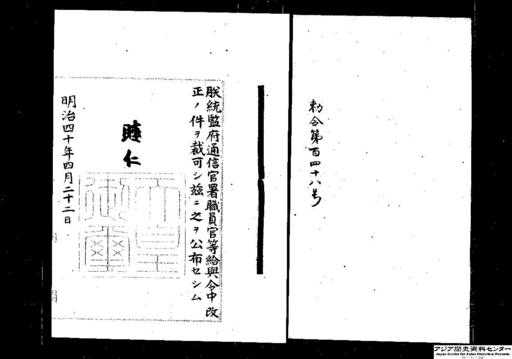 勅令第百四十八号
朕統監府通信官署職員官等給與令中改
正ノ件ヲ裁可シ茲ニ之ヲ公布セシム
睦仁
天皇御璽
明治四十年四月二十二日
アジア歴史資料センター
Japan Center for Asian Historical Records